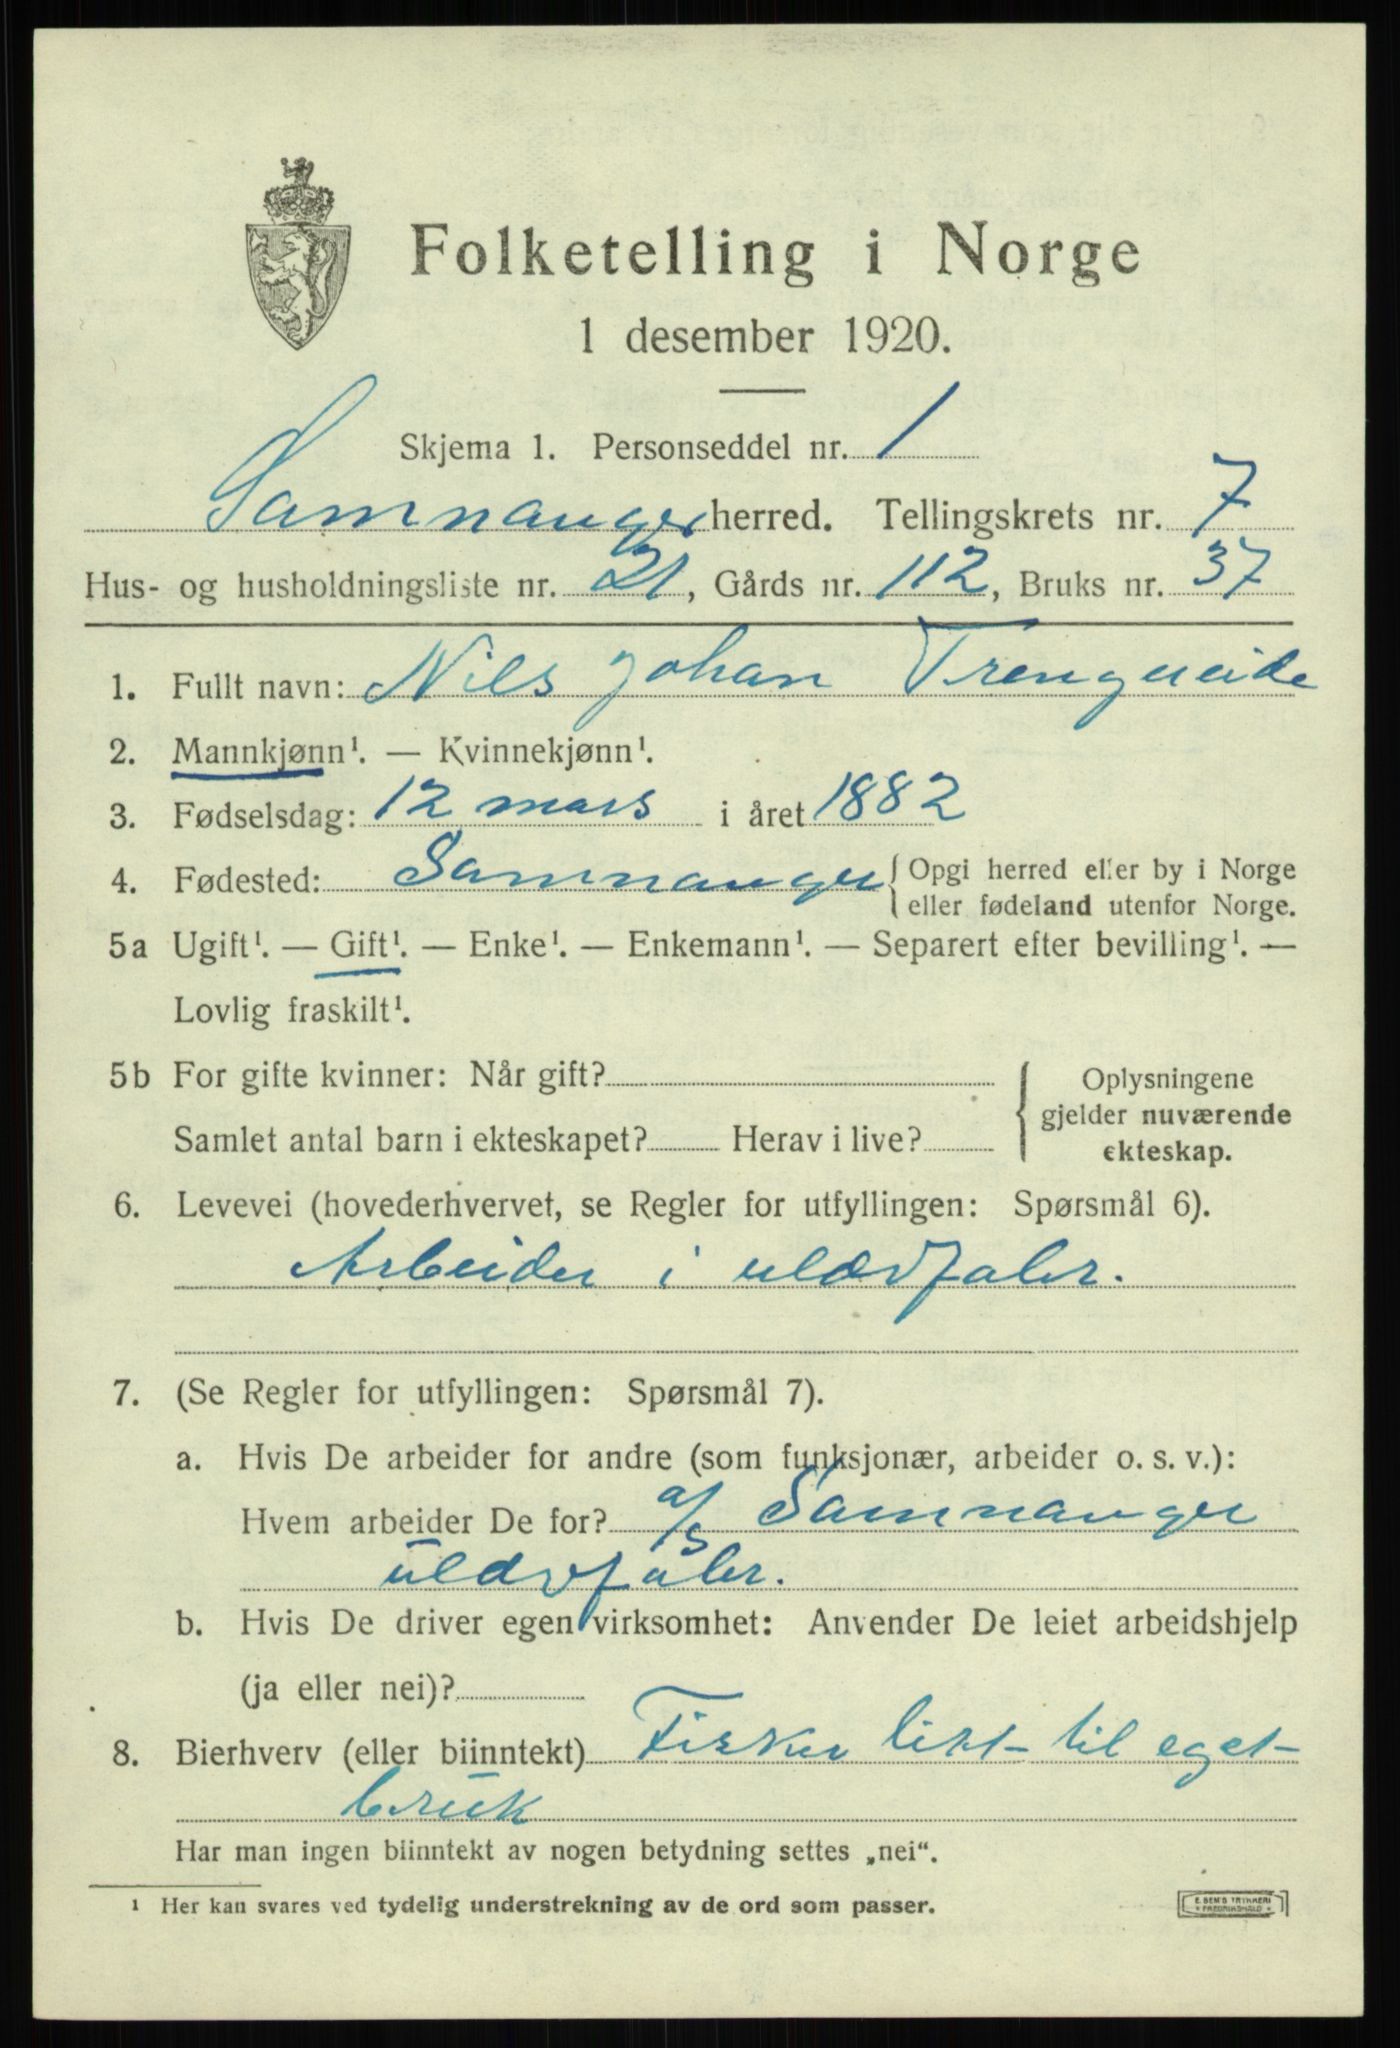 Folketelling i Norge
1 desember 1920.
Skjema 1. Personseddel nr. 1
Samnanger herred. Tellingskrets nr. 7
Hus- og husholdningsliste nr. 21, Gårds nr. 112, Bruks nr. 37
1. Fullt navn: Nils Johan Trengereide
2. Mannkjønn¹. — Kvinnekjønn¹.
3. Fødselsdag: 12 mars i året 1882
4. Fødested: Samnanger { Opgi herred eller by i Norge
eller fødeland utenfor Norge.
5a Ugift¹. — Gift¹. — Enke¹. — Enkemann¹. — Separert efter bevilling¹. —
Lovlig fraskilt¹.
5b For gifte kvinner: Når gift? { Oplysningene
gjelder nuværende
Samlet antal barn i ekteskapet? Herav i live?
ekteskap.
6. Levevei (hovederhvervet, se Regler for utfyllingen: Spørsmål 6).
Arbeider i uldvfabr.
7. (Se Regler for utfyllingen: Spørsmål 7).
a. Hvis De arbeider for andre (som funksjonær, arbeider o. s. v.):
Hvem arbeider De for? a/s Samnanger
uldvfabr.
b. Hvis De driver egen virksomhet: Anvender De leiet arbeidshjelp
(ja eller nei)?
8. Bierhverv (eller biinntekt) Fisker litt til eget
bruk
Har man ingen biinntekt av nogen betydning settes „nei“.
¹ Her kan svares ved tydelig understrekning av de ord som passer.
E. SEM'S TRYKKERI
FREDRIKSHALD